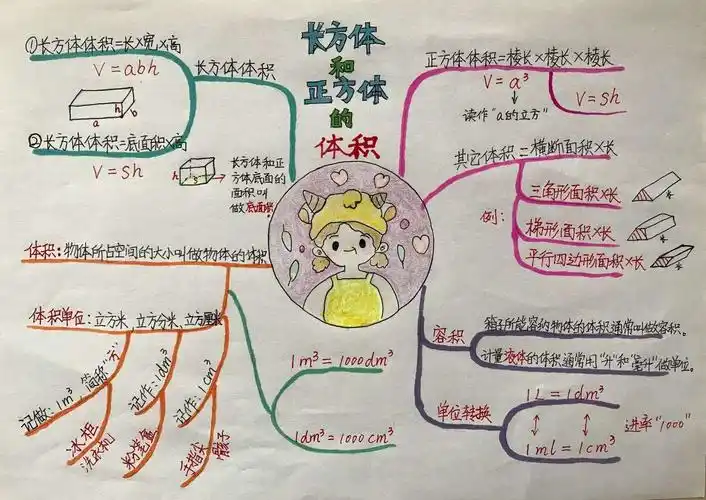 长方体
和
正方体
的
体积
①长方体体积=长×宽×高
V=abh
长方体体积
h
b
a
②长方体体积=底面积×高
V=sh
h
s
长方体和正
方体底面的
面积叫
做底面积
正方体体积=棱长×棱长×棱长
V=a³
V=sh
读作"a的立方"
其它体积=横断面积×长
例:
三角形面积×长
梯形面积×长
平行四边形面积×长
体积:物体所占空间的大小叫做物体的体积
体积单位:立方米,立方分米,立方厘米
记做:1m³,简称"方"
记作:1dm³
记作:1cm³
冰柜
洗衣机
粉笔盒
手指尖
骰子
1m³=1000dm³
1dm³=1000cm³
容积
箱子所能容纳物体的体积通常叫做容积。
计量液体的体积通常用"升"和"毫升"做单位。
单位转换
1L=1dm³
1ml=1cm³
进率"1000"